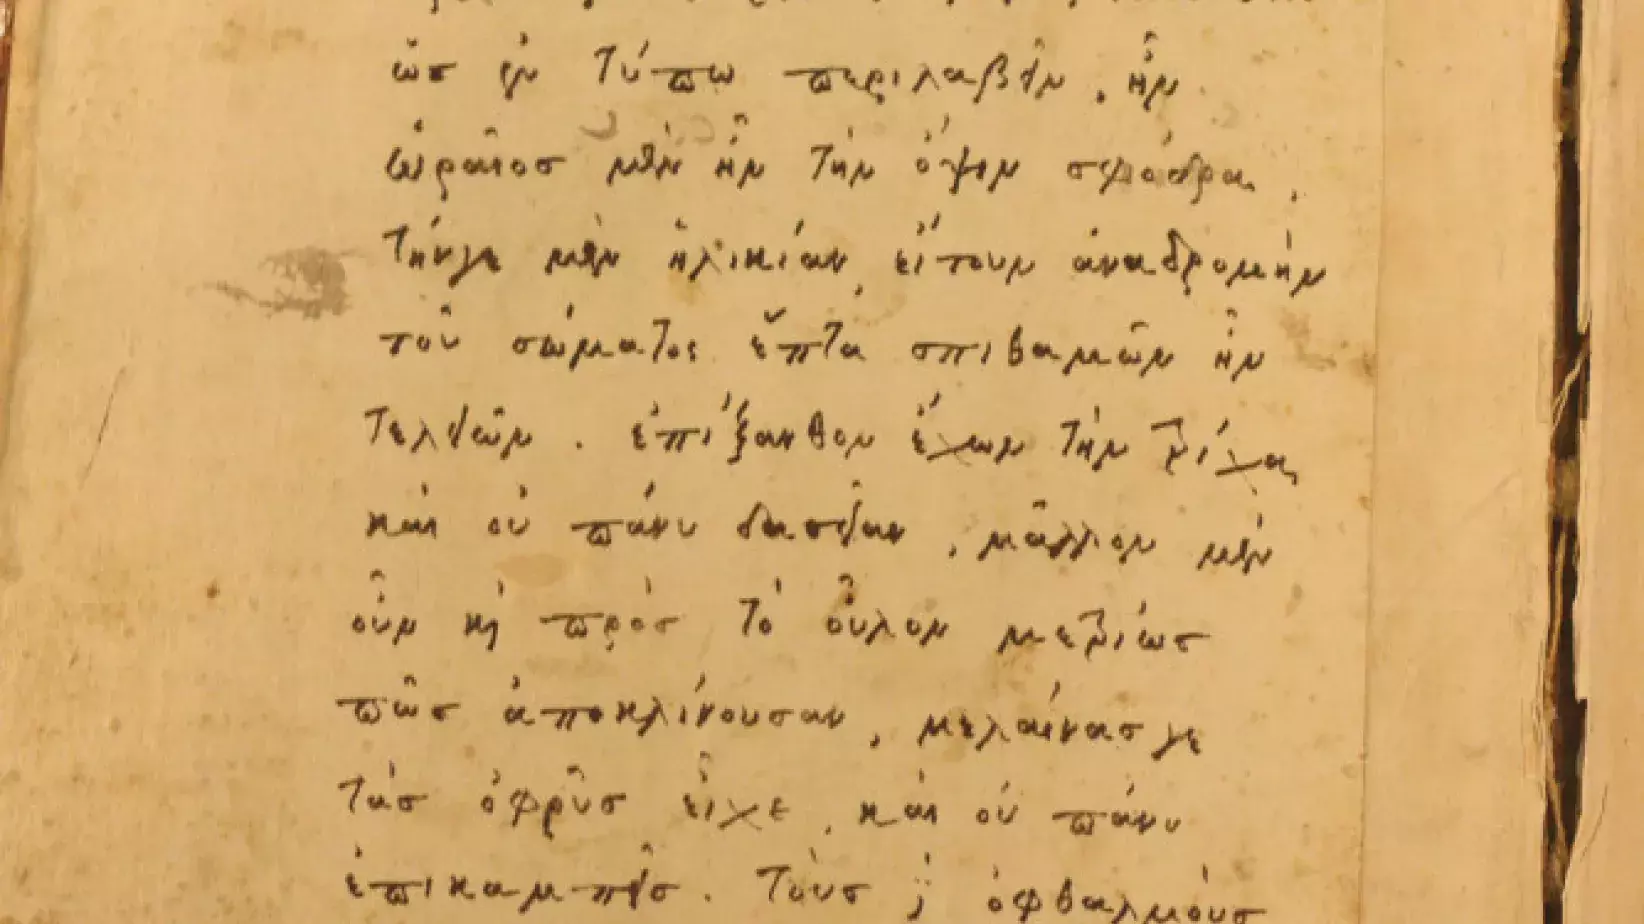 ὡς ἐν τύπω περιλαβεῖν, ἦν
ὡραῖος μὲν ἦν τὴν ὄψιν σφόδρα,
τήνγε μὲν ἡλικίαν, εἴτουν ἀναδρομὴν
τοῦ σώματος ἑπτὰ σπιθαμῶν ἦν
τελείων. ἐπίξανθον ἔχων τὴν τρίχα,
καὶ οὐ πάνυ δασεῖαν, μᾶλλον μὲν
οὖν κ̀ πρὸς τὸ οὖλον μετρίως
πῶς ἀποκλίνουσαν, μελαίνας γε
τὰς ὀφρῦς εἶχε, καὶ οὐ πάνυ
ἐπικαμπεῖς. τοὺς δ̀ ὀφθαλμοὺς